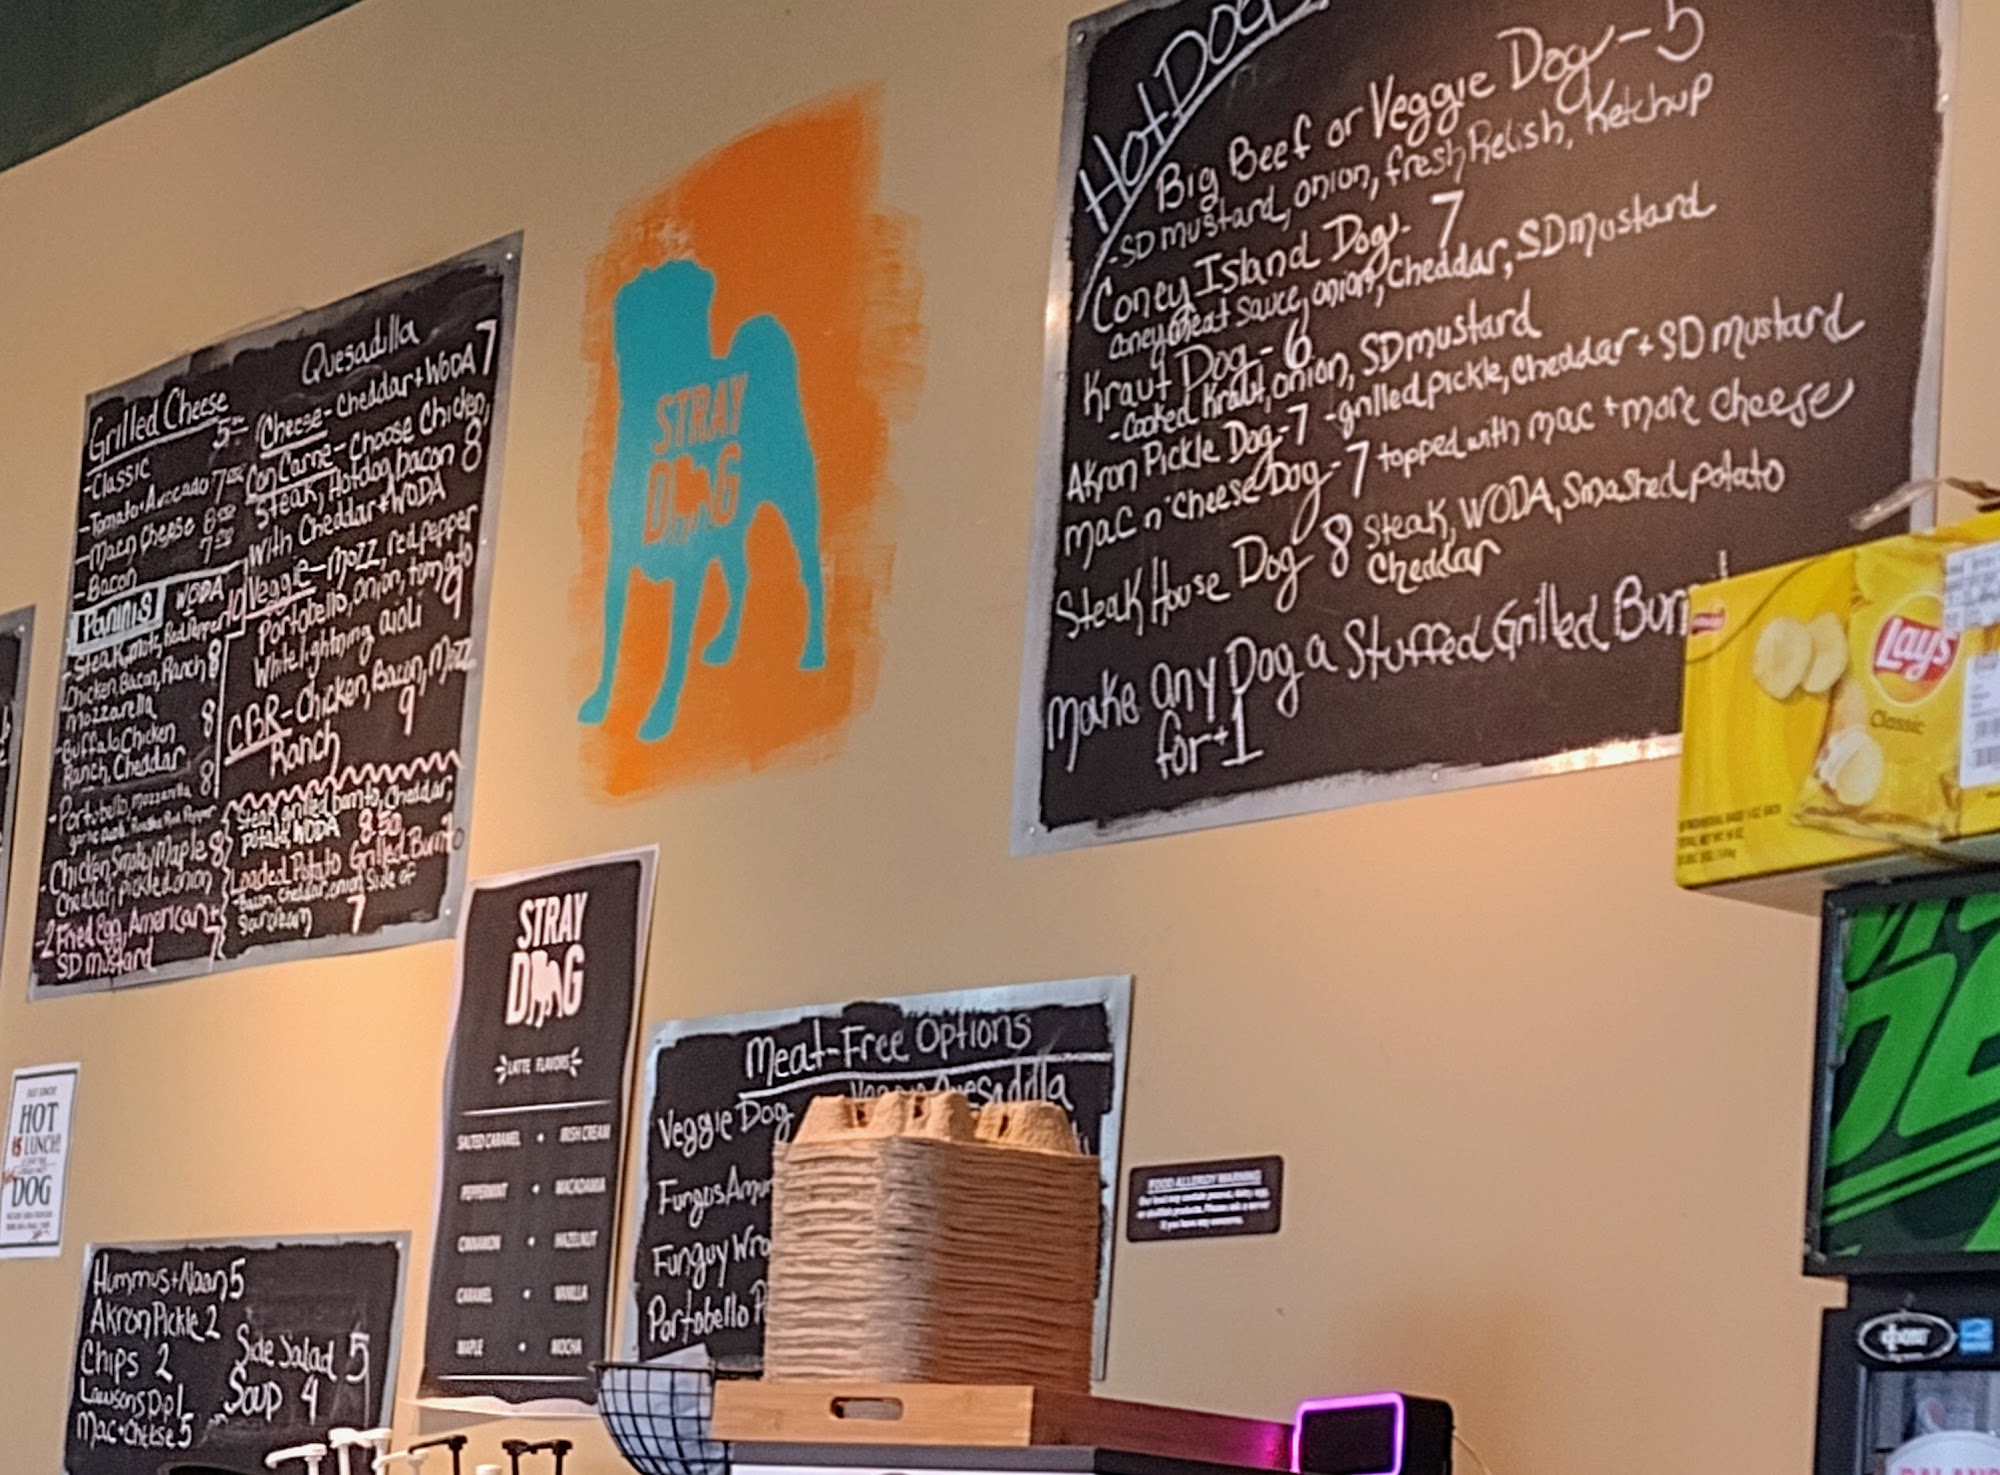 Grilled Cheese
-Classic 5
-Tomato+Avocado 7
-Macn Cheese 8
-Bacon 7
Paninis
-Steak, motz, Red Pepper WODA 10
Chicken, Bacon, Ranch 8
Mozzarella
-Buffalo Chicken 8
Ranch, Cheddar
-Portobello, Mozzarella 8
-Chicken Smoky Maple 8
Cheddar, pickled onion
-2 Fried Egg, American+
SD Mustard 7
Quesadilla
Cheese-Cheddar+WODA 7
Con Carne-Choose Chicken,
Steak, Hotdog, bacon 8
With Cheddar+WODA
Veggie-Mozz, red pepper
Portobello, onion, tomato
Whitelightning aioli 9
CBR-Chicken, Bacon, Mozz
Ranch 9
Steak grilled burrito, Cheddar,
potato, WODA 8.50
Loaded Potato Grilled Burrit
-Bacon, Cheddar, onion Side of
Sour cream 7
STRAY
DOG
Hot Dogs
Big Beef or Veggie Dog-5
-SD mustard, onion, fresh Relish, Ketchup
Coney Island Dog- 7
coney meat sauce, onion, Cheddar, SD mustard
Kraut Dog-6
-Cooked Kraut, onion, SD mustard
Akron Pickle Dog-7 -grilled pickle, cheddar+SD mustard
Mac n' Cheese Dog-7 topped with mac+more cheese
Steak House Dog 8 Steak, WODA, Smashed potato
Cheddar
Make Any Dog a Stuffed Grilled Burr
for +1
Lay's
Classic
STRAY
DOG
LATTE FLAVORS
SALTED CARAMEL • IRISH CREAM
PEPPERMINT • MACADAMIA
CINNAMON • HAZELNUT
CARAMEL • VANILLA
MAPLE • MOCHA
Meat-Free Options
Veggie Quesadilla
Veggie Dog
Fungus Amun
Funguy Wra
Portobello P
FOOD ALLERGY WARNING
HOT
IS LUNCH!
DOG
Hummus+Naan 5
Akron Pickle 2
Chips 2
Lawsons Dip 1
Mac+Cheese 5
Side Salad 5
Soup 4